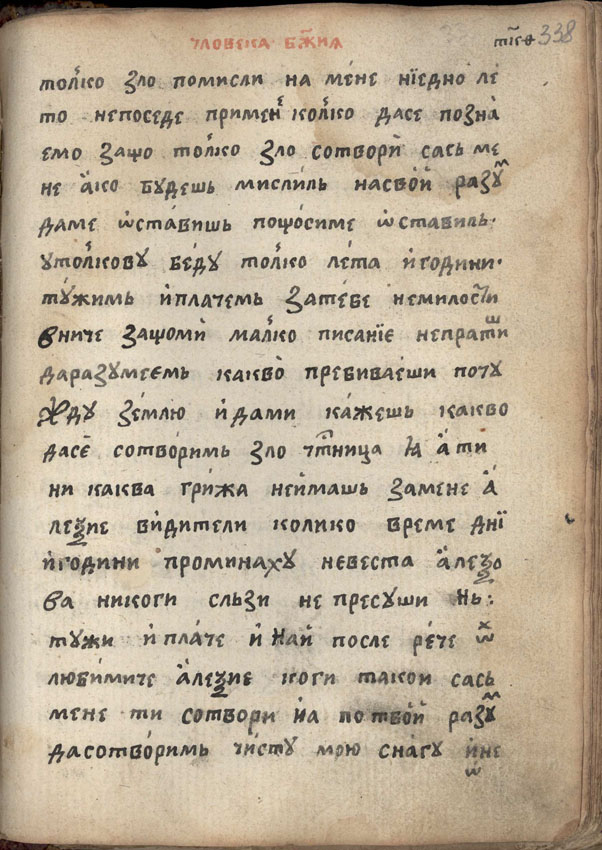 чловека бж҃ия т҃ле 338
тол҆ко зло помисли на ме́не нїедно ле́
то непоседе примен҆ кол҆ко дасе позна̀
емо защо тол҆ко зло сотвори́ сась ме
не а҆́ко будешь мислиль насво́й разу́м
даме ѡста́вишь пощосиме ѡставиль·
утол҆кову бе́ду тол҆ко ле́та и҆години·
ту́жимь и҆плачемь зате́бе немилости
вниче защоми̇̀ мал҆ко писанїе непратиш
даразумеемь какво̀ пребива́еши поту
жду зе́млю и҆ дами ка́жешь какво
дасѐ сотво́римь зло чтн҃ица ꙗ҆ а҆́ ти
ни каква гри́жа неи́машь замене а҆́
леѯие ви́дители колико време днї
и҆години проминаху невеста а҆леѯо
ва никоги слъзи не пресуши нь:
тужи и҆ пла́че и҆ най после ре́че ѽ
люби́мите а҆леѯие коги такои сась
мене ти сотвори и҆а по тво́й разу́м
дасотво́римь чи́сту мою сна́гу и҆не
ѡ